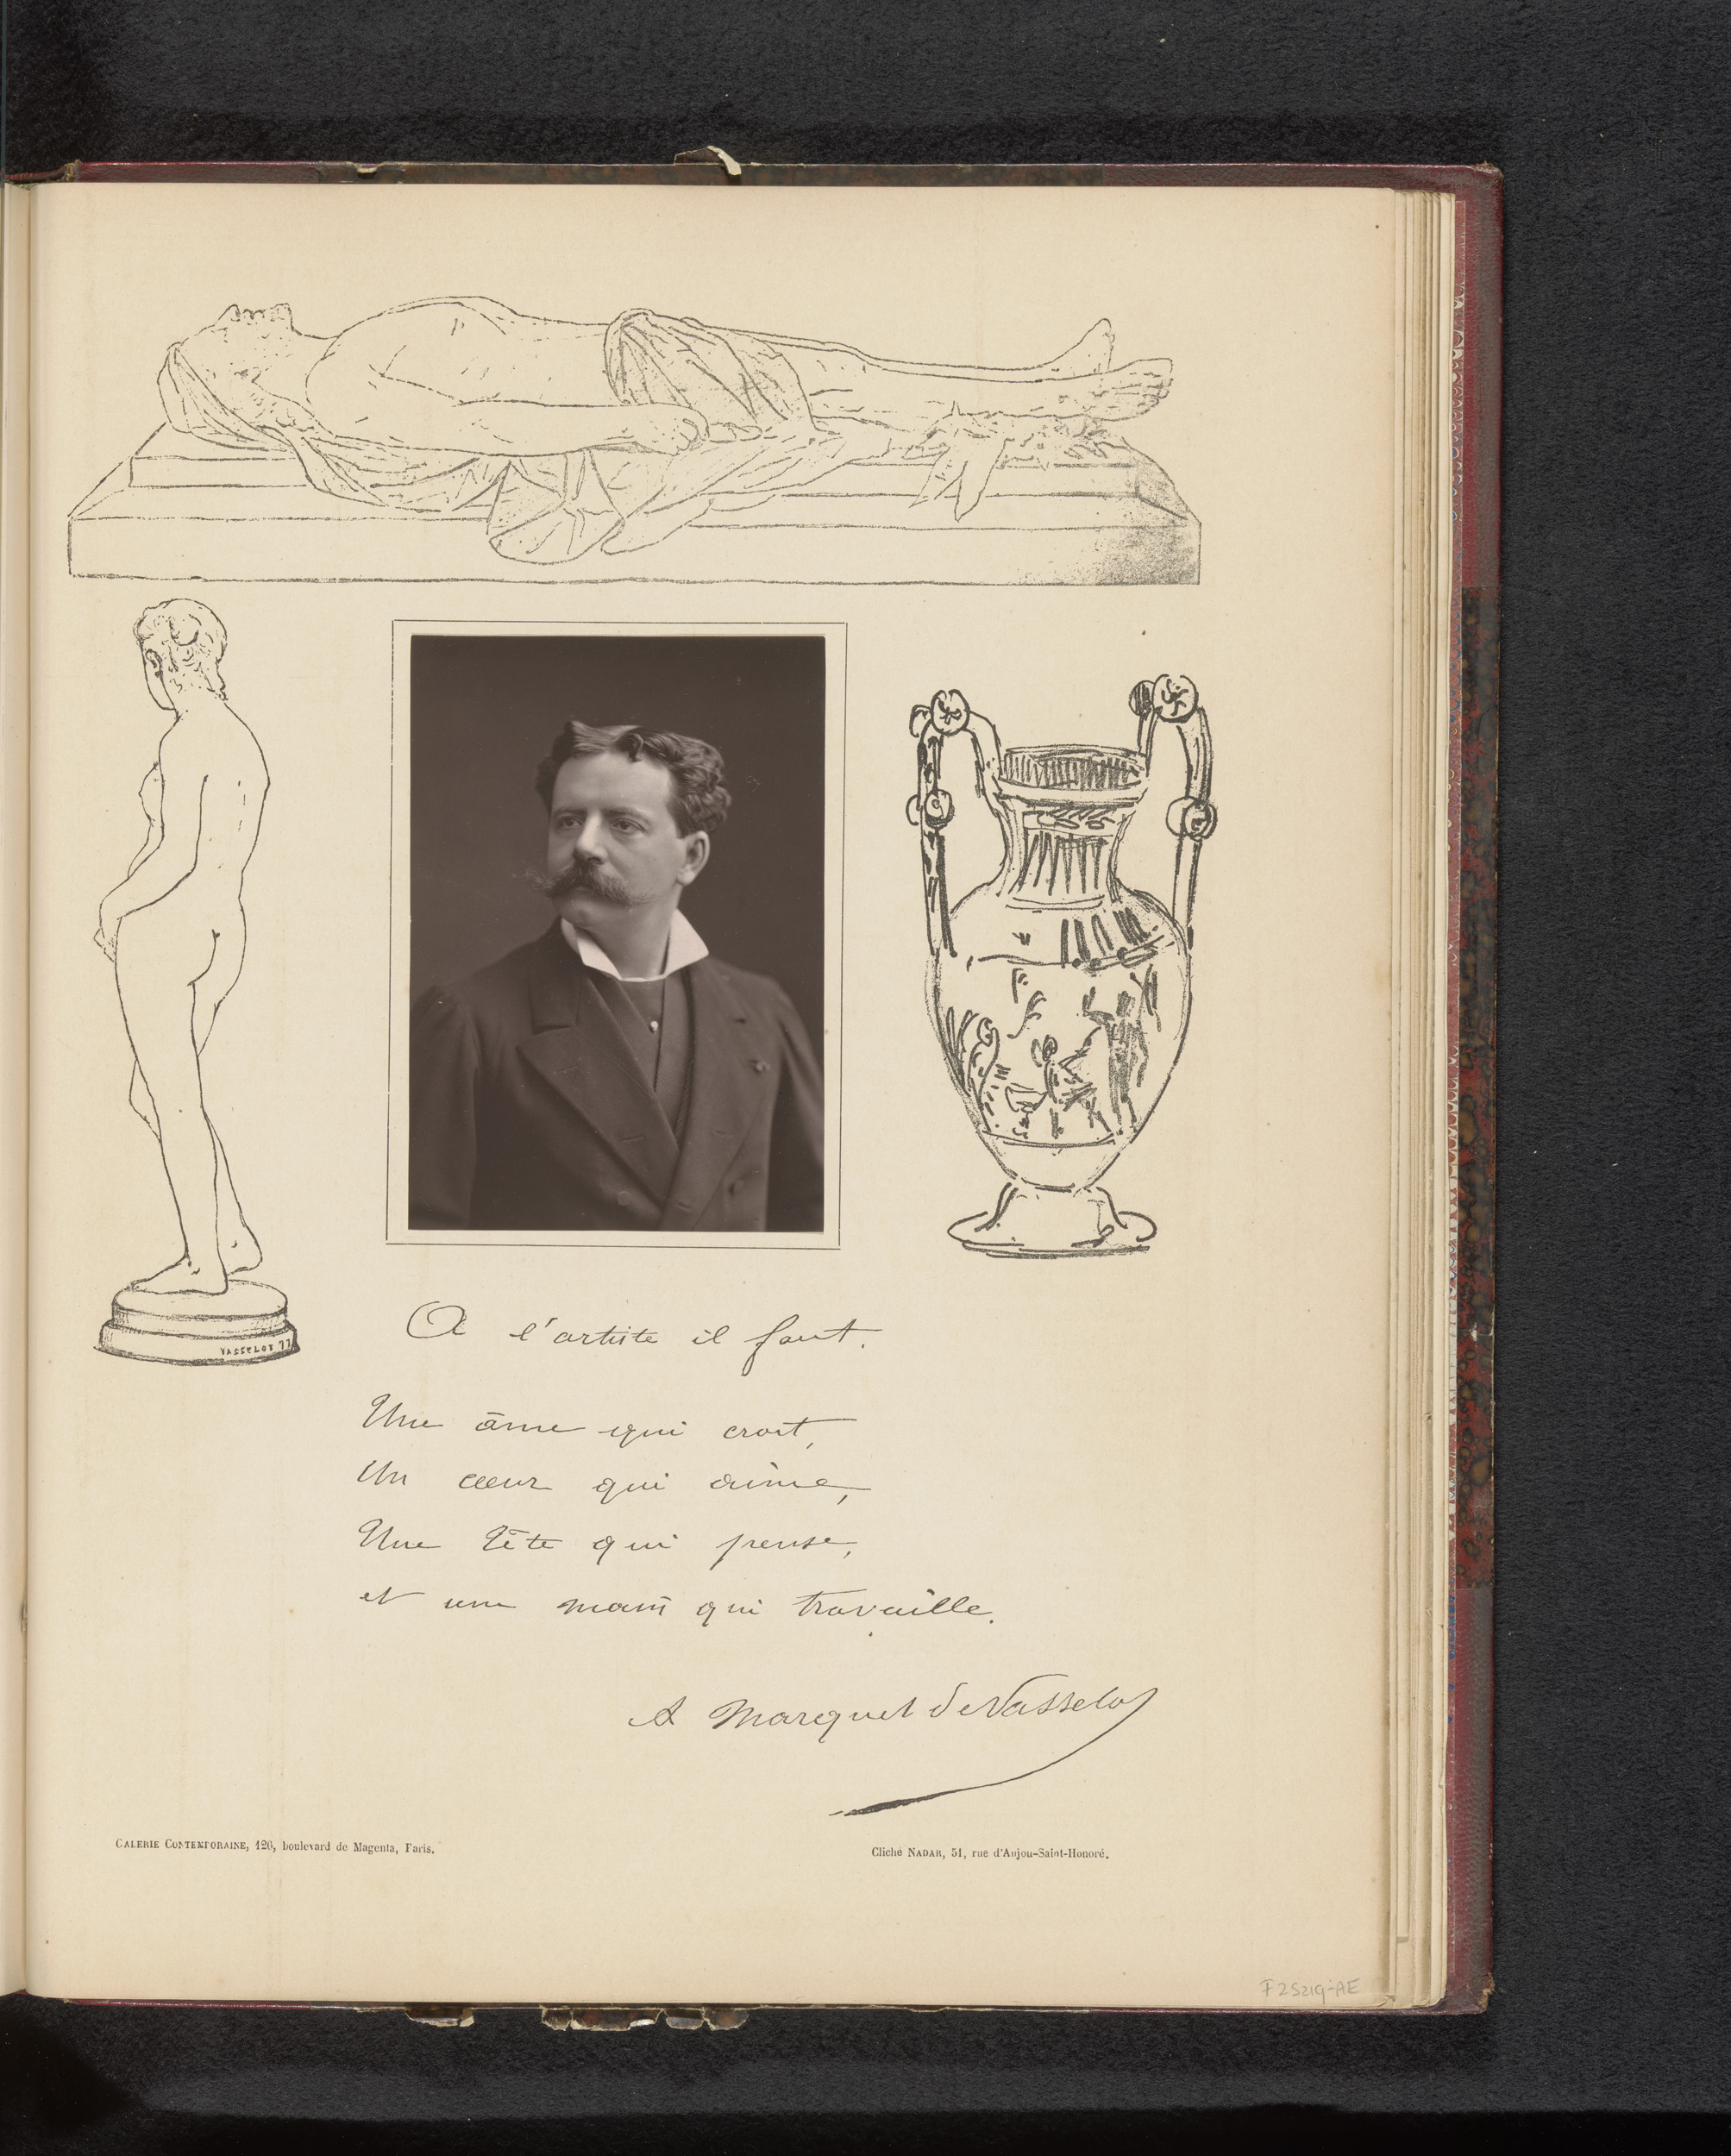 VASSELOT 77
A l'artiste il faut.
Une âme qui croit,
Un cœur qui aime,
Une tête qui pense,
et une main qui travaille.
A Marquet de Vasselot
GALERIE CONTEMPORAINE, 126, boulevard de Magenta, Paris.
Cliché NADAR, 51, rue d'Anjou-Saint-Honoré.
F25219-AE